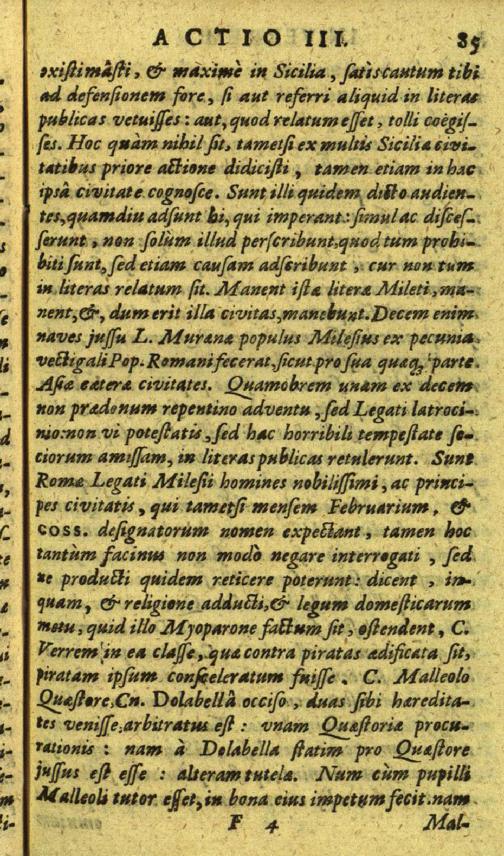 ACTIO III. 85
existimâsti, & maximè in Sicilia, satis cautum tibi
ad defensionem fore, si aut referri aliquid in literas
publicas vetuisses: aut, quod relatum esset, tolli coëgis-
ses. Hoc quàm nihil sit, tametsi ex multis Siciliæ civi-
tatibus priore actione didicisti, tamen etiam in hac
ipsâ civitate cognosce. Sunt illi quidem dicto audien-
tes, quamdiu adsunt hi, qui imperant: simul ac disces-
serunt, non solùm illud perscribunt, quod tum prohi-
biti sunt, sed etiam causam adscribunt, cur non tum
in literas relatum sit. Manent istæ literæ Mileti, ma-
nent, &, dum erit illa civitas, manebunt. Decem enim
naves jussu L. Murænæ populus Milesius ex pecunia
vectigali Pop. Romani fecerat, sicut pro sua quaq; parte
Asiæ cæteræ civitates. Quamobrem unam ex decem
non prædonum repentino adventu, sed Legati latroci-
nio: non vi potestatis, sed hac horribili tempestate so-
ciorum amissam, in literas publicas retulerunt. Sunt
Romæ Legati Milesii homines nobilissimi, ac princi-
pes civitatis, qui tametsi mensem Februarium, &
COSS. designatorum nomen expectant, tamen hoc
tantum facinus non modò negare interrogati, sed
ne producti quidem reticere poterunt: dicent, in-
quam, & religione adducti, & legum domesticarum
metu, quid illo Myoparone factum sit, ostendent, C.
Verrem in ea classe, quæ contra piratas ædificata sit,
piratam ipsum consceleratum fuisse. C. Malleolo
Quæstore, Cn. Dolabellâ occiso, duas sibi hæredita-
tes venisse arbitratus est: vnam Quæstoriæ procu-
rationis: nam à Dolabella statim pro Quæstore
jussus est esse: alteram tutelæ. Num cùm pupilli
Malleoli tutor esset, in bona eius impetum fecit. nam
F 4 Mal-